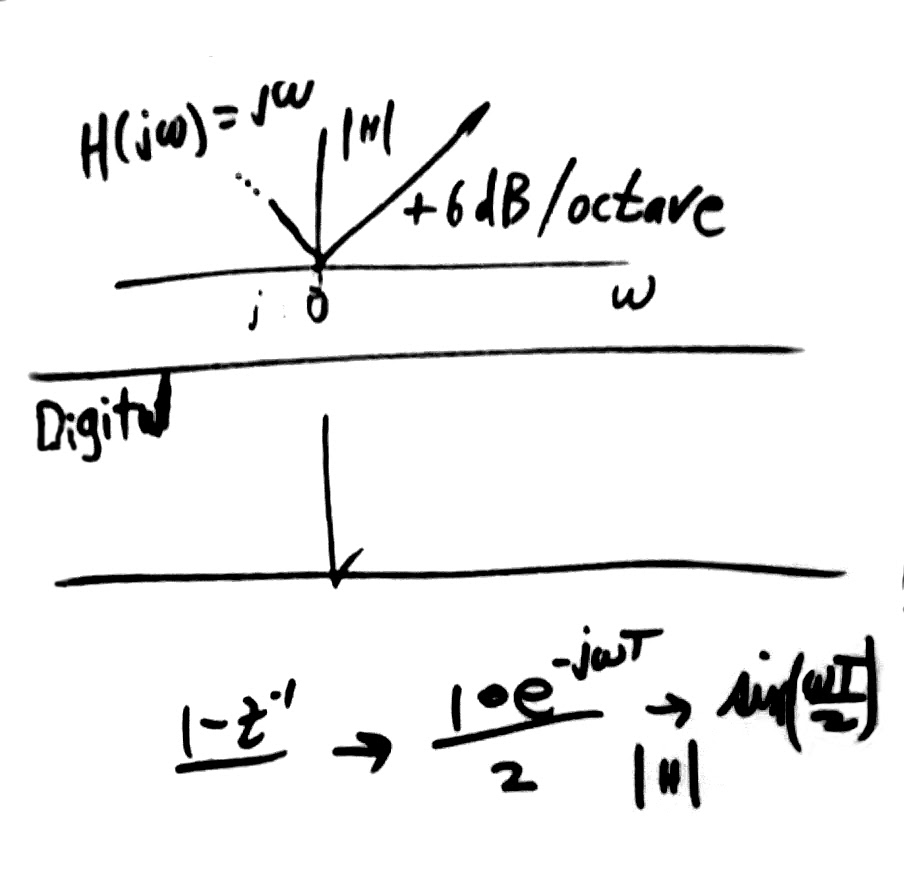 H(jω) = jω
|H|
+6 dB/octave
j 0 ω
Digital
1-z⁻¹ → 1•e^(-jωT)/2 → |H| sin(ωT/2)